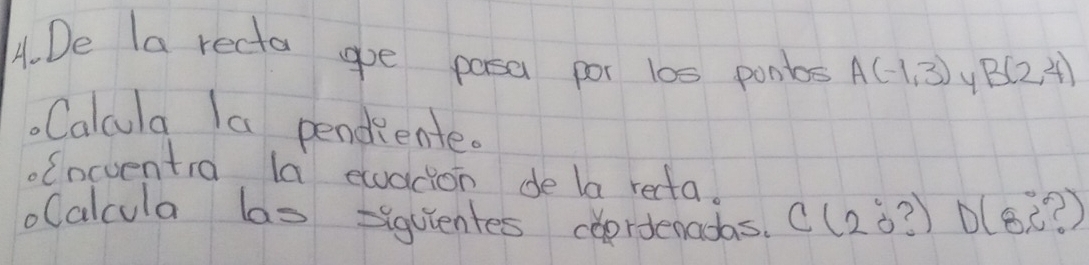 4. De la recta que pasa por los pontos A(-1,3) y B(2,4)
•Calcula la pendiente.
•Encuentra la ecuación de la recta.
•Calcula las siguientes coordenadas. C(2¿?) D(8¿?)